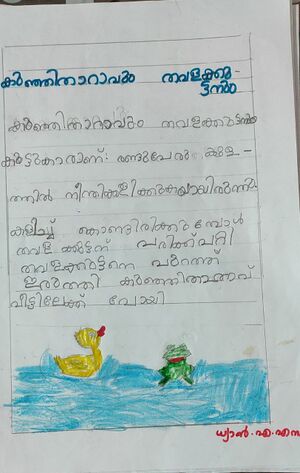 കുഞ്ഞിതാറാവും തവളക്കു-
ട്ടനും
കുഞ്ഞിതാറാവും തവളക്കുട്ടനും
കൂട്ടുകാരാണ്. രണ്ടുപേരും കുള-
ത്തിൽ നീന്തിക്കളിക്കുകയായിരുന്നു.
കളിച്ച് കൊണ്ടിരിക്കുമ്പോൾ
തവളക്കുട്ടന് പരിക്ക് പറ്റി
തവളക്കുട്ടനെ പുറത്ത്
ഇരുത്തി കുഞ്ഞിത്താറാവ്
വീട്ടിലേക്ക് പോയി
ധ്യാൻ.എ.എസ